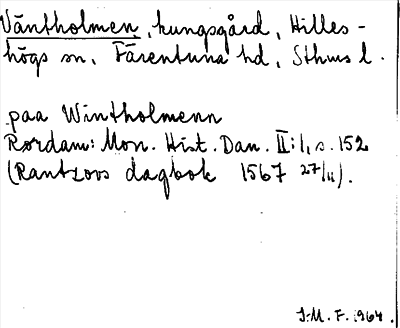 Väntholmen, kungsgård, Hilles-
högs sn, Färentuna hd, Sthms l.
paa Wintholmenn
Rørdam: Mon. Hist. Dan. II:1, s. 152
(Rantzovs dagbok 1567 27/11).
I.M.F. 1964.